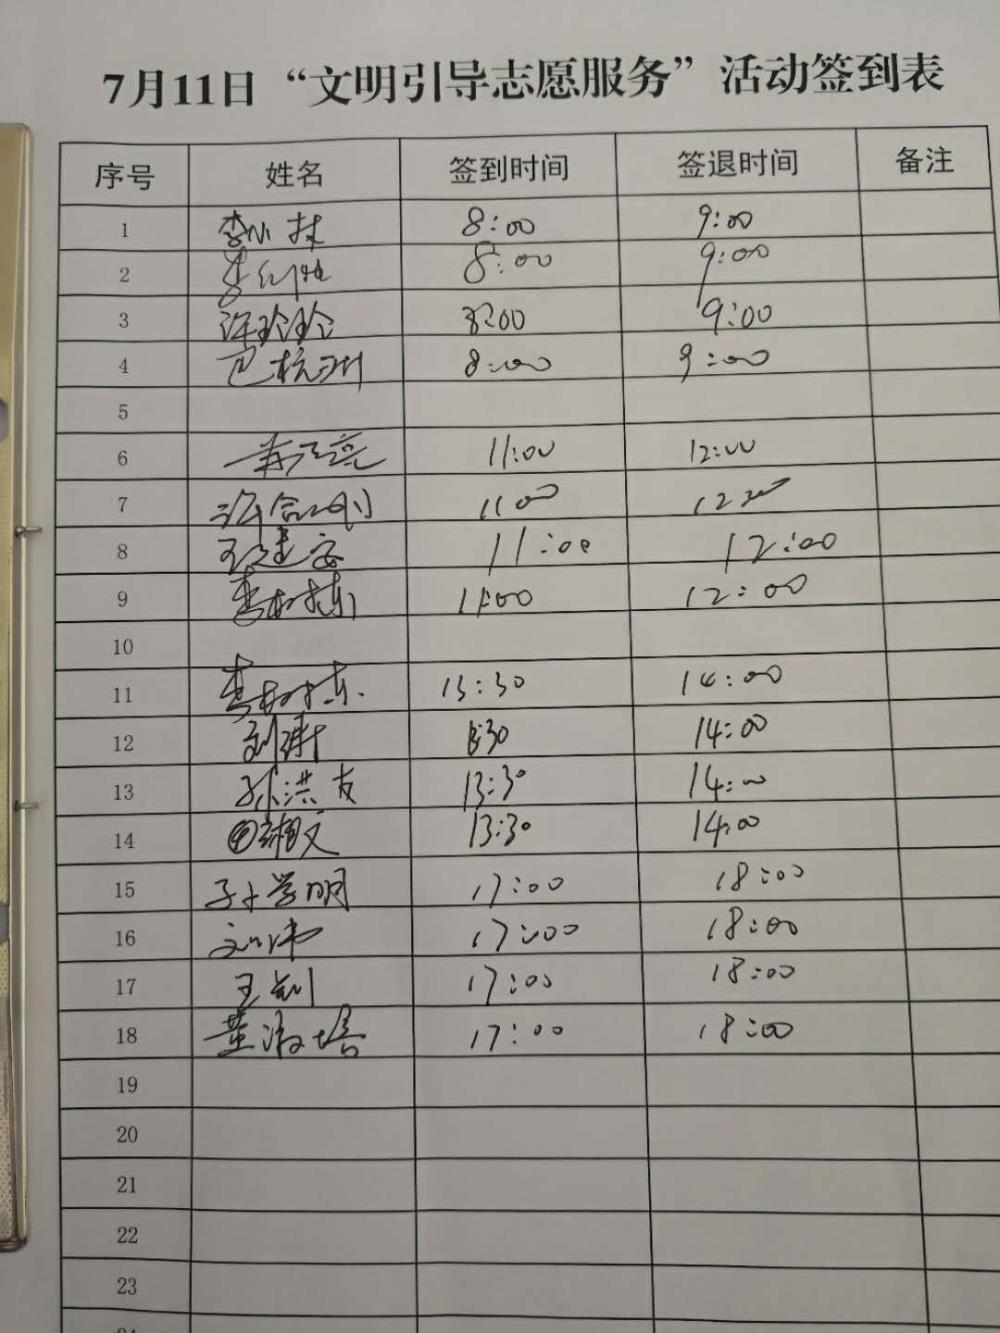 7月11日“文明引导志愿服务”活动签到表
序号 姓名 签到时间 签退时间 备注
1 李小林 8:00 9:00
2 8:00 9:00
3 许玲玲 8:00 9:00
4 巴杭洲 8:00 9:00
5
6 11:00 12:00
7 11 00 12 00
8 王建安 11:00 12:00
9 11:00 12:00
10
11 13:30 14:00
12 刘琳 13:30 14:00
13 孙洪友 13:30 14:00
14 13:30 14:00
15 孙学明 17:00 18:00
16 刘伟 17:00 18:00
17 王剑 17:00 18:00
18 董海塔 17:00 18:00
19
20
21
22
23